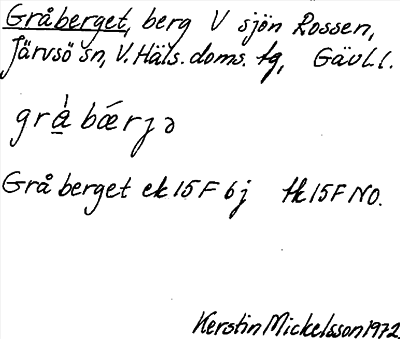 Gråberget, berg V sjön Rossen,
Järvsö sn, V. Häls. doms. tg, Gävl. l.
grà̱ bǽrjə
Gråberget ek 15 F 6j tk 15F NO.
Kerstin Mickelsson 1972.